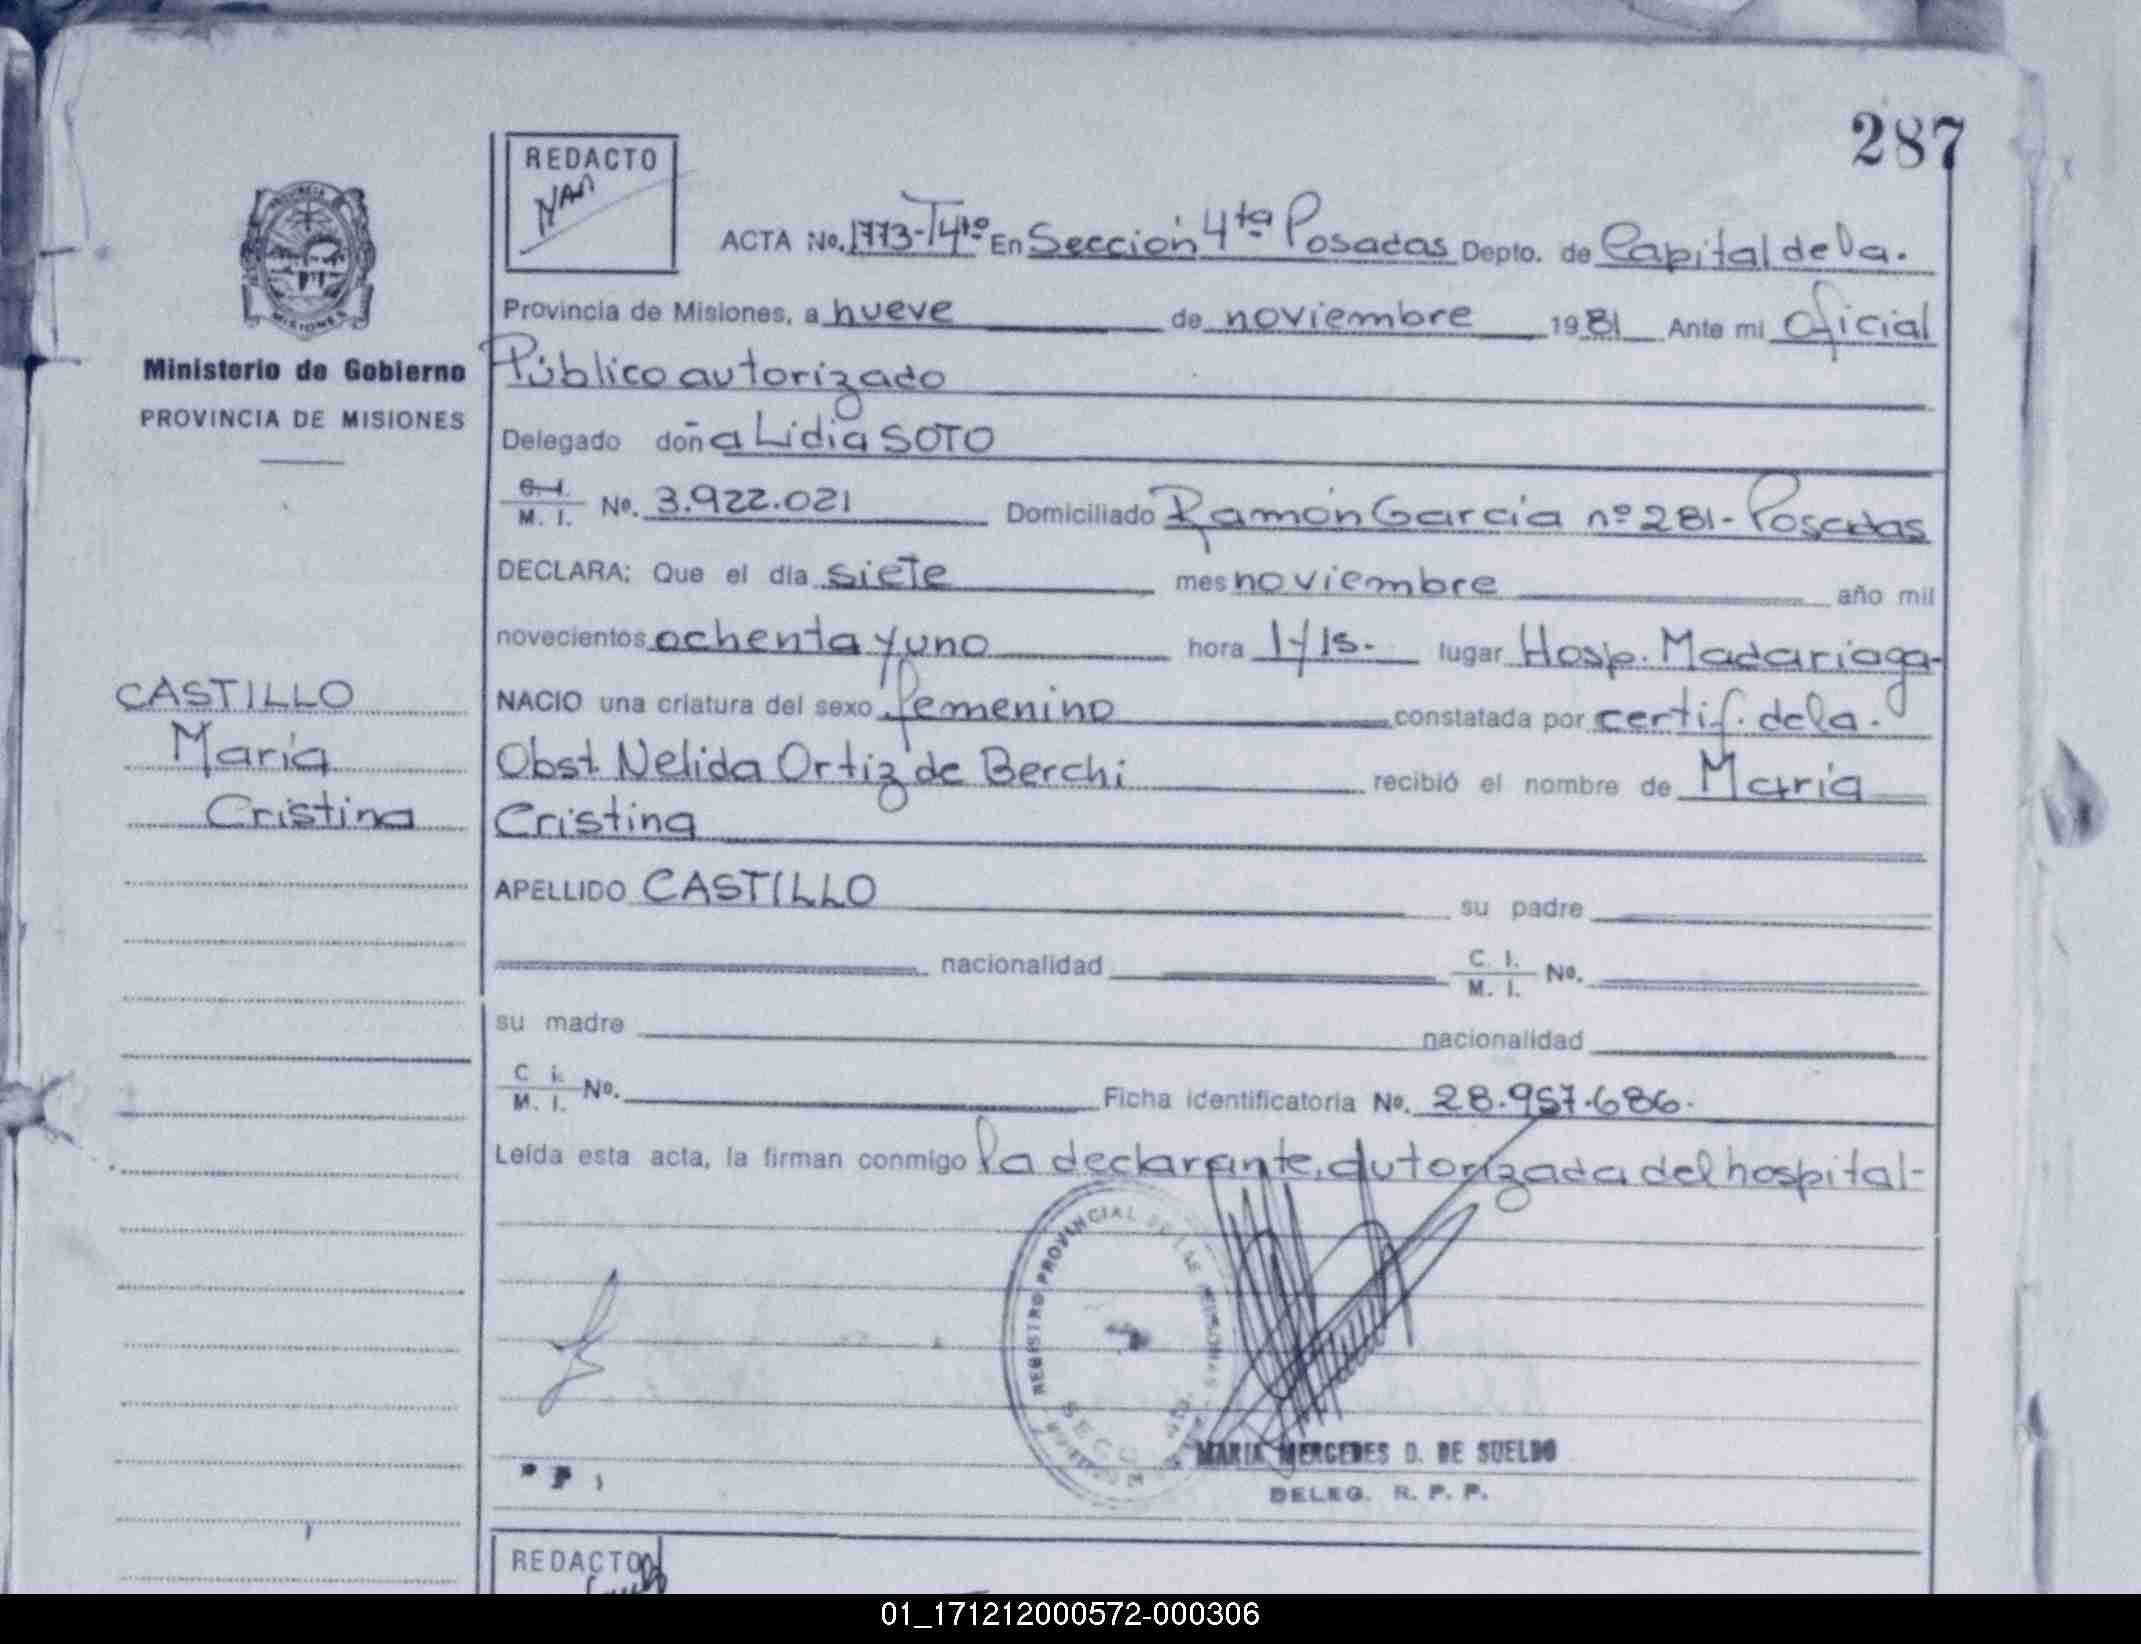 287
REDACTO
ACTA No. 1773-T4to En Sección 4ta Posadas Depto. de Capital de la.
Provincia de Misiones, a nueve de noviembre 1981 Ante mi Oficial
Público autorizado
Delegado doña Lidia SOTO
C.I. M. I. No. 3.922.021 Domiciliado Ramón García nº 281- Posadas
DECLARA: Que el día siete mes noviembre año mil
novecientos ochenta y uno hora lugar Hosp. Madariaga-
NACIO una criatura del sexo femenino constatada por certif. de la.
Obst. Nelida Ortiz de Berchi recibió el nombre de María
Cristina
APELLIDO CASTILLO su padre
nacionalidad C. I. M. I. No.
su madre nacionalidad
C i. M. I. No. Ficha identificatoria No. 28.957.686.
Leída esta acta, la firman conmigo la declarante, autorizada del hospital-
PROVINCIA
MISIONES
Ministerio de Gobierno
PROVINCIA DE MISIONES
CASTILLO
María
Cristina
REGISTRO PROVINCIAL DE LAS PERSONAS
MARIA MERCEDES D. DE SUELDO
DELEG. R. P. P.
REDACTO
01_171212000572-000306